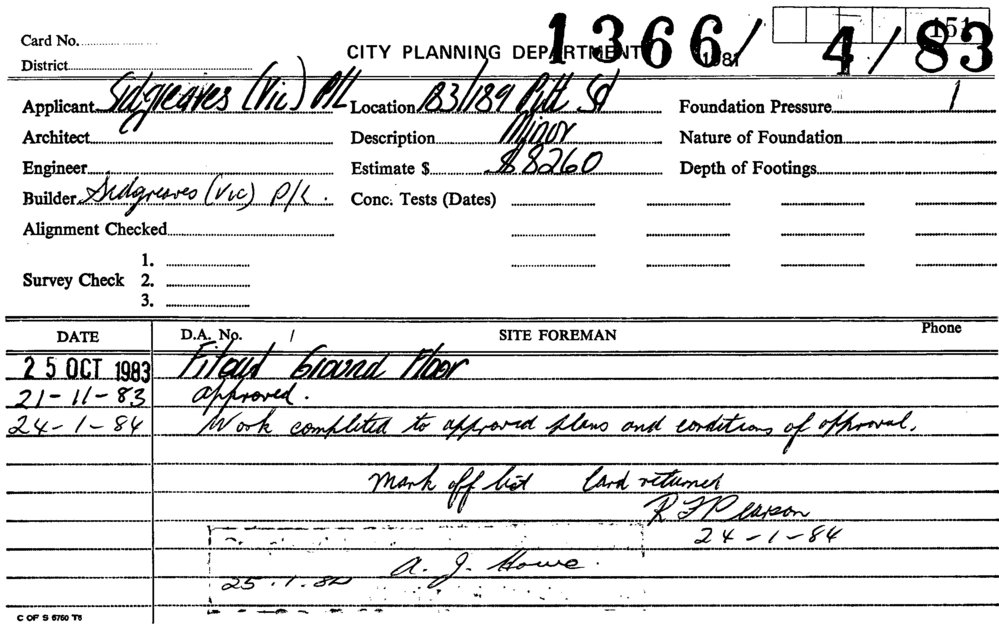 1366/4/83
151
Card No.
CITY PLANNING DEPARTMENT 1981
District
Applicant Sidgreaves (Vic) P/L Location 183/189 Pitt St Foundation Pressure 1
Architect Description Minor Nature of Foundation
Engineer Estimate $ $8260 Depth of Footings
Builder Sidgreaves (Vic) P/L. Conc. Tests (Dates)
Alignment Checked
1.
Survey Check 2.
3.
DATE D.A. No. / SITE FOREMAN Phone
25 OCT 1983 Fitout Ground Floor
21-11-83 approved.
24-1-84 Work completed to approved plans and conditions of approval.
Mark off list Card returned
R F Pearson
24-1-84
A. J. Howe.
25.1.84
C OF S 6760 T6